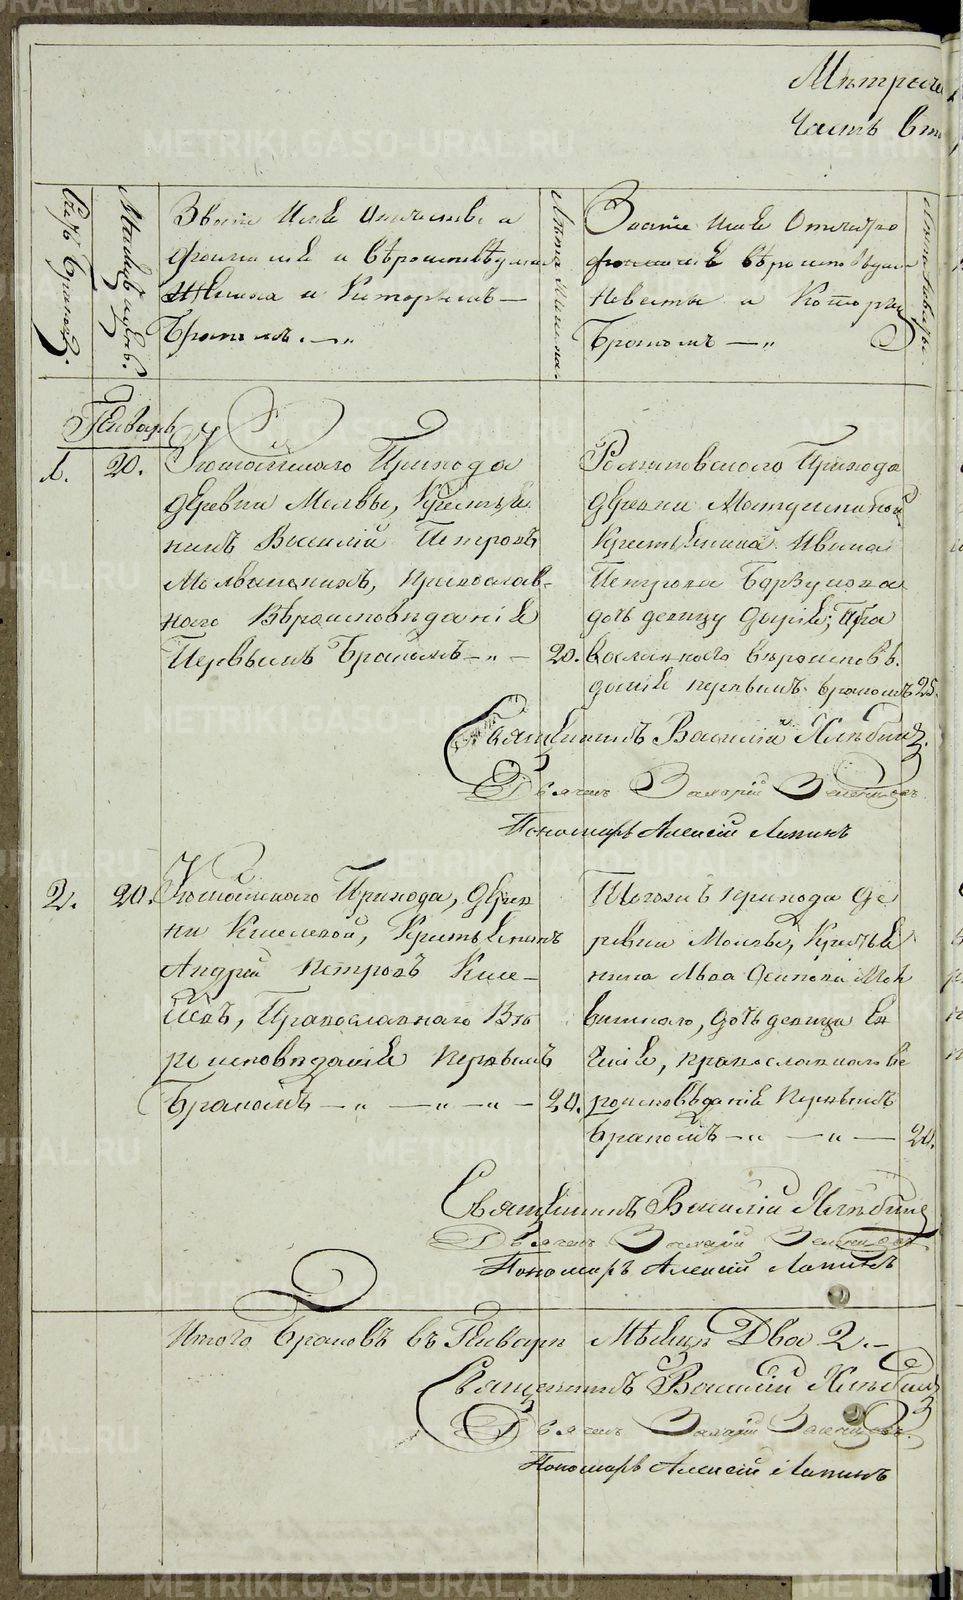 Метриче
Часть вто
Счетъ браковъ.
Мѣсяцъ и день.
Званіе Имя Отчество и
фамиліе и вѣроисповѣданіе
жениха и Которымъ —
Бракомъ. — „
Лѣта жениха.
Званіе Имя Отчество
фамиліе вѣроисповѣданіе
Невесты и Которымъ
Бракомъ — „
Лѣта невесты.
Генварь
1. 20.
Кошайскаго Прихода
деревни Молвы, Крестья
нинъ Василій Петровъ
Молвинскихъ, православ-
наго Вѣроисповѣданіе
Первымъ Бракомъ — „ — 20.
Романовскаго Прихода
деревни Матушкиной
Крестьянина Ивана
дочь девицу Дарія; Пра
вославнаго вѣроисповѣ
даніе первымъ бракомъ 25.
Священникъ Василій Хлѣбинъ.
Дьячекъ Захарій Зеленцовъ
Пономарь Алексій Лапинъ
2. 20.
Кошайскаго Прихода, дерев
ни Киселевой, Крестьянинъ
Андрей Петровъ Кисе-
левъ, Православнаго Вѣ
роисповѣданіе первымъ
Бракомъ — „ — „ — „ — 20.
Тогожъ прихода де
ревни Молвы, Крестья
нина Льва Осипова Мол
винскаго, дочь девица Ев
геніе, православнаго ве
роисповѣданіе Первымъ
Бракомъ — „ — „ — 20.
Священникъ Василій Хлѣбинъ
Дьячекъ Захарій Зеленцовъ
Пономарь Алексій Лапинъ
Итого Браковъ въ Генварѣ Мѣсяцѣ Два 2. —
Священникъ Василій Хлѣбинъ
Дьячекъ Захарій Зеленцовъ.
Пономарь Алексій Лапинъ
METRIKI.GASO-URAL.RU